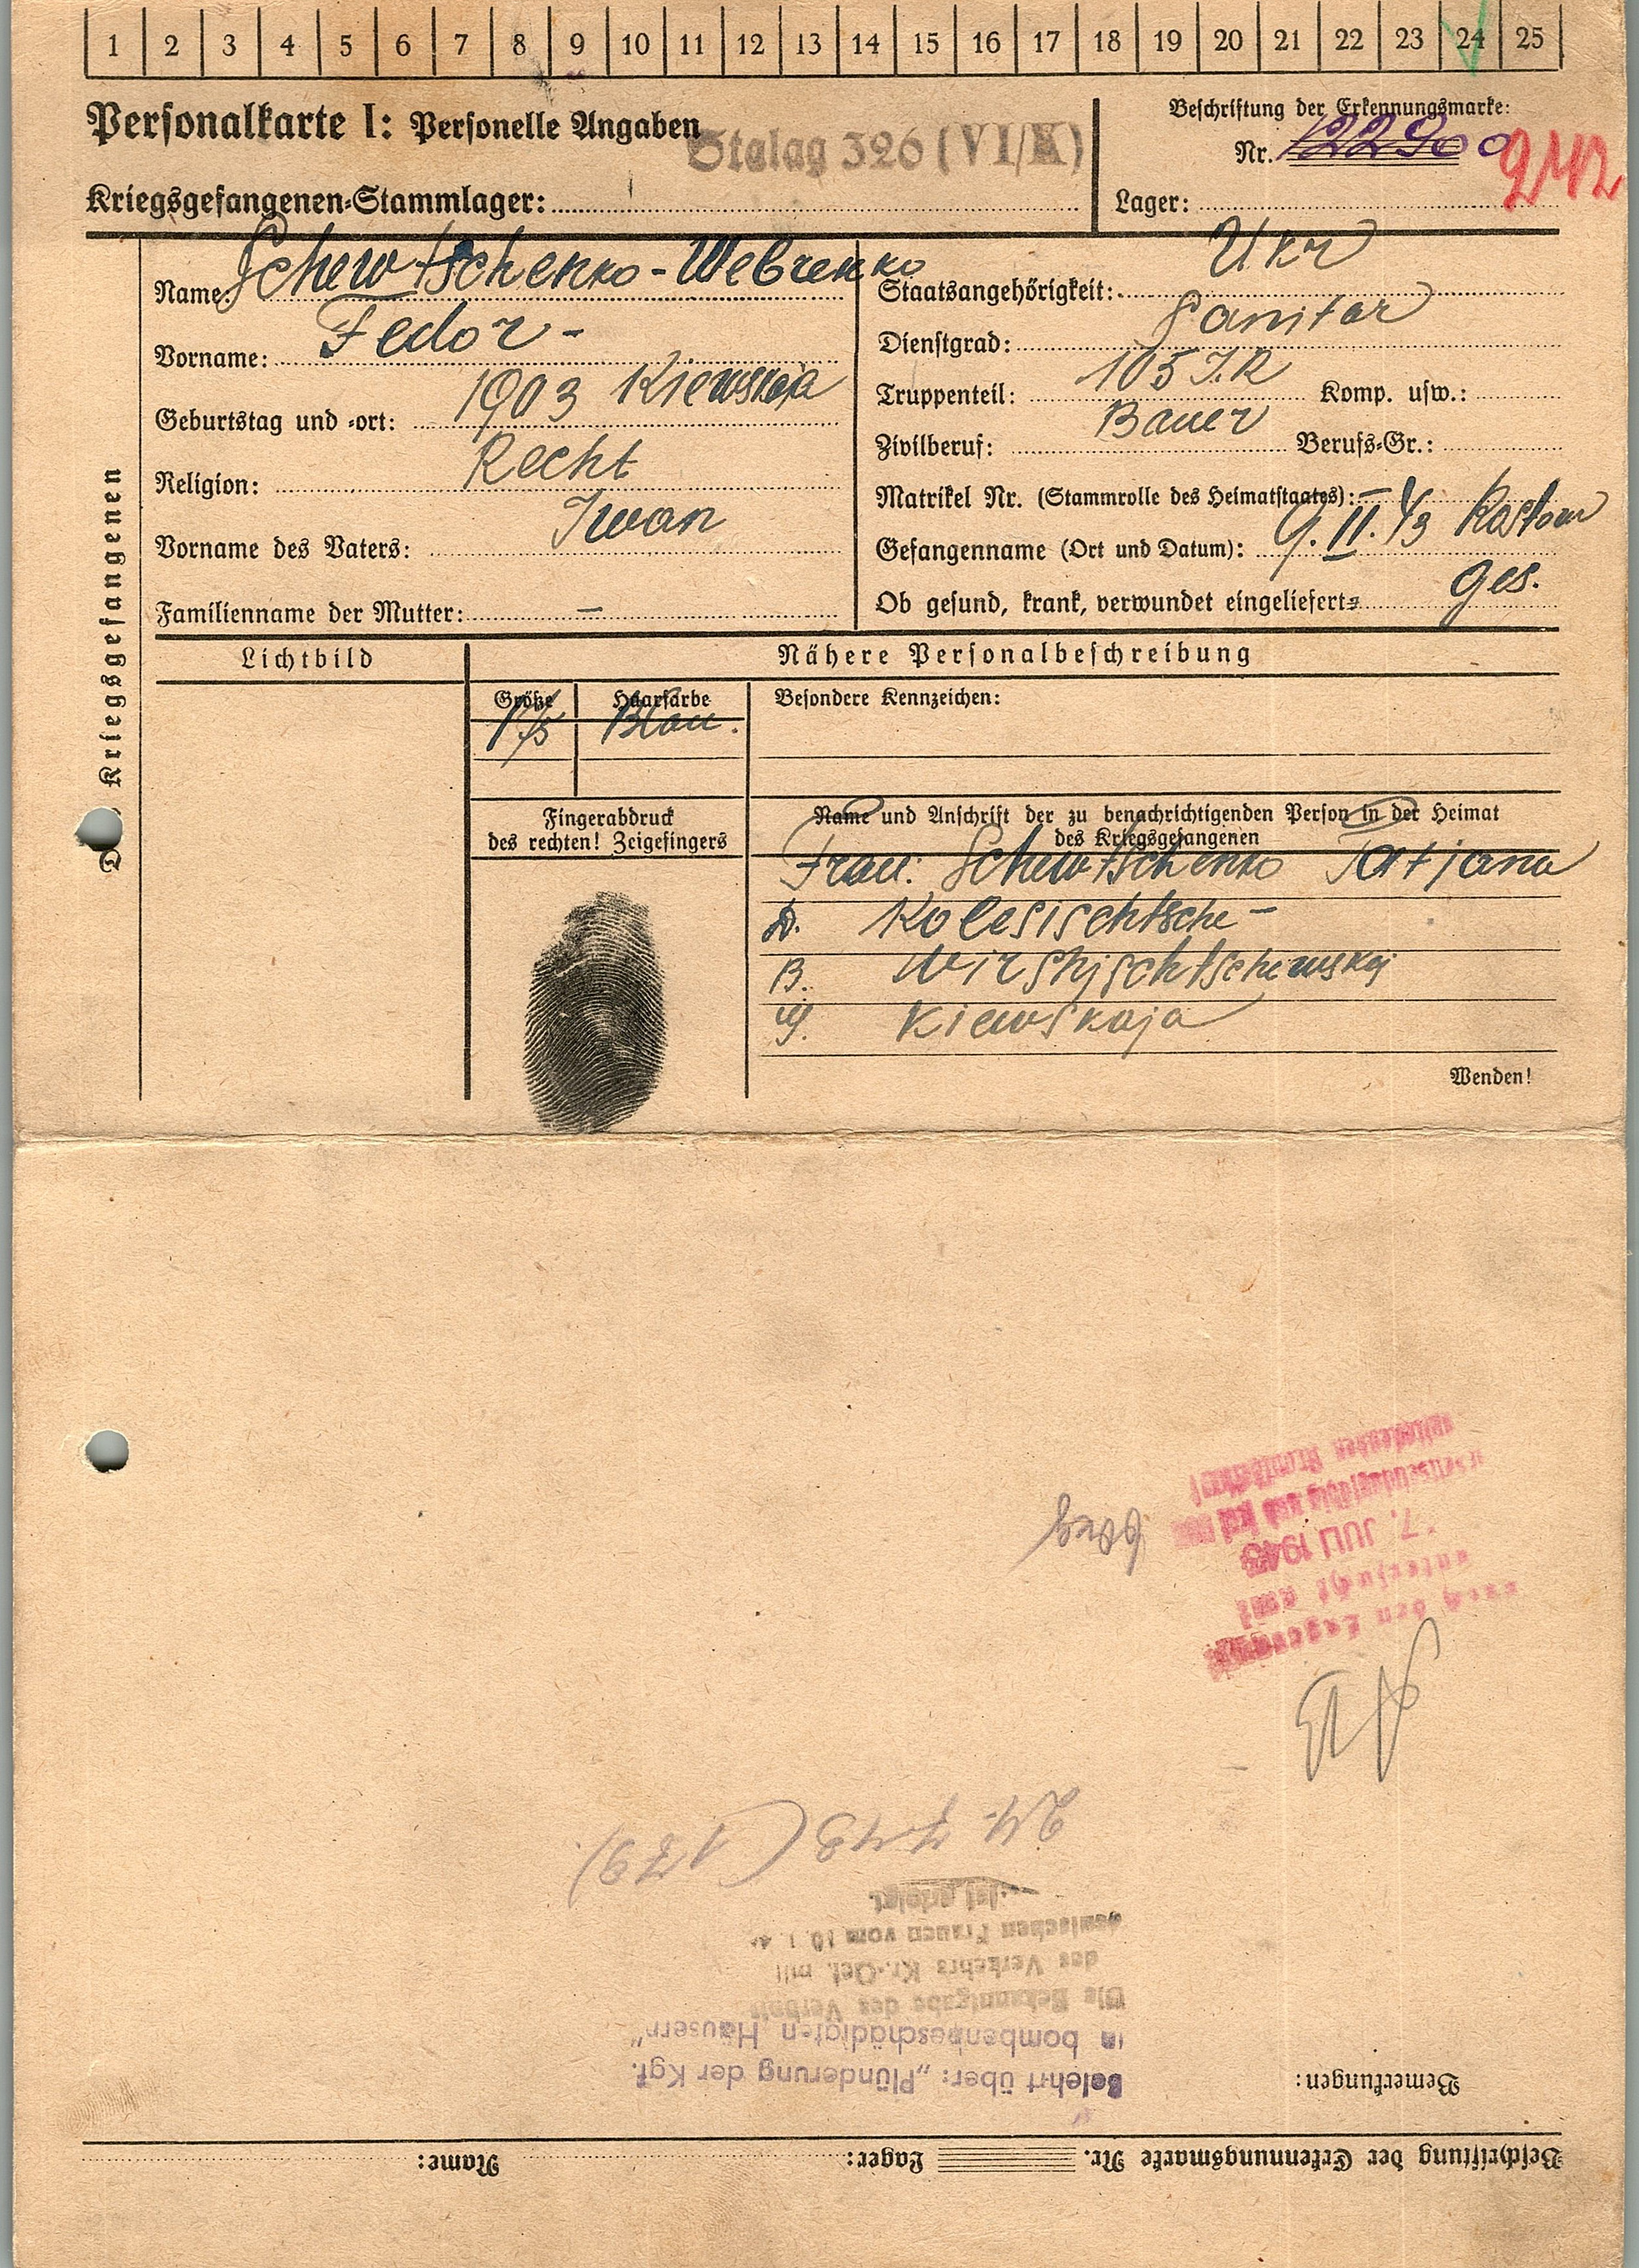 1 2 3 4 5 6 7 8 9 10 11 12 13 14 15 16 17 18 19 20 21 22 23 24 25
Personalkarte I: Personelle Angaben
Stalag 326 (VI/K)
Kriegsgefangenen-Stammlager:
Beschriftung der Erkennungsmarke:
Nr. 122900
Lager:
Des Kriegsgefangenen
Name: Schewtschenko-Webrenko
Vorname: Fedor -
Geburtstag und -ort: 1903 Kiewskaja
Religion: Recht
Vorname des Vaters: Iwan
Familienname der Mutter: —
Staatsangehörigkeit: Ukr
Dienstgrad: Sanitar
Truppenteil: 105 I.R Komp. usw.:
Zivilberuf: Bauer Berufs-Gr.:
Matrikel Nr. (Stammrolle des Heimatstaates): —
Gefangenname (Ort und Datum): 9.II.43 Rostow
Ob gesund, krank, verwundet eingeliefert: ges.
Lichtbild
Nähere Personalbeschreibung
Größe Haarfarbe
175 Blau.
Besondere Kennzeichen:
Fingerabdruck
des rechten! Zeigefingers
Name und Anschrift der zu benachrichtigenden Person in der Heimat
des Kriegsgefangenen
Frau: Schewtschenko Tatjana
D. Kolesischtsche -
B.
G. Kiewskaja
Wenden!
Beschriftung der Erkennungsmarke Nr. Lager: Name:
Bemerkungen:
Belehrt über: „Plünderung der Kgf.
in bombenbeschädigten Häusern"
Die Bekanntgabe des Verbots
des Verkehrs Kr.-Gef. mit
deutschen Frauen vom 10. 1. 4
ist erfolgt.
24. 7 43 (179).
untersucht am
7. JULI 1943